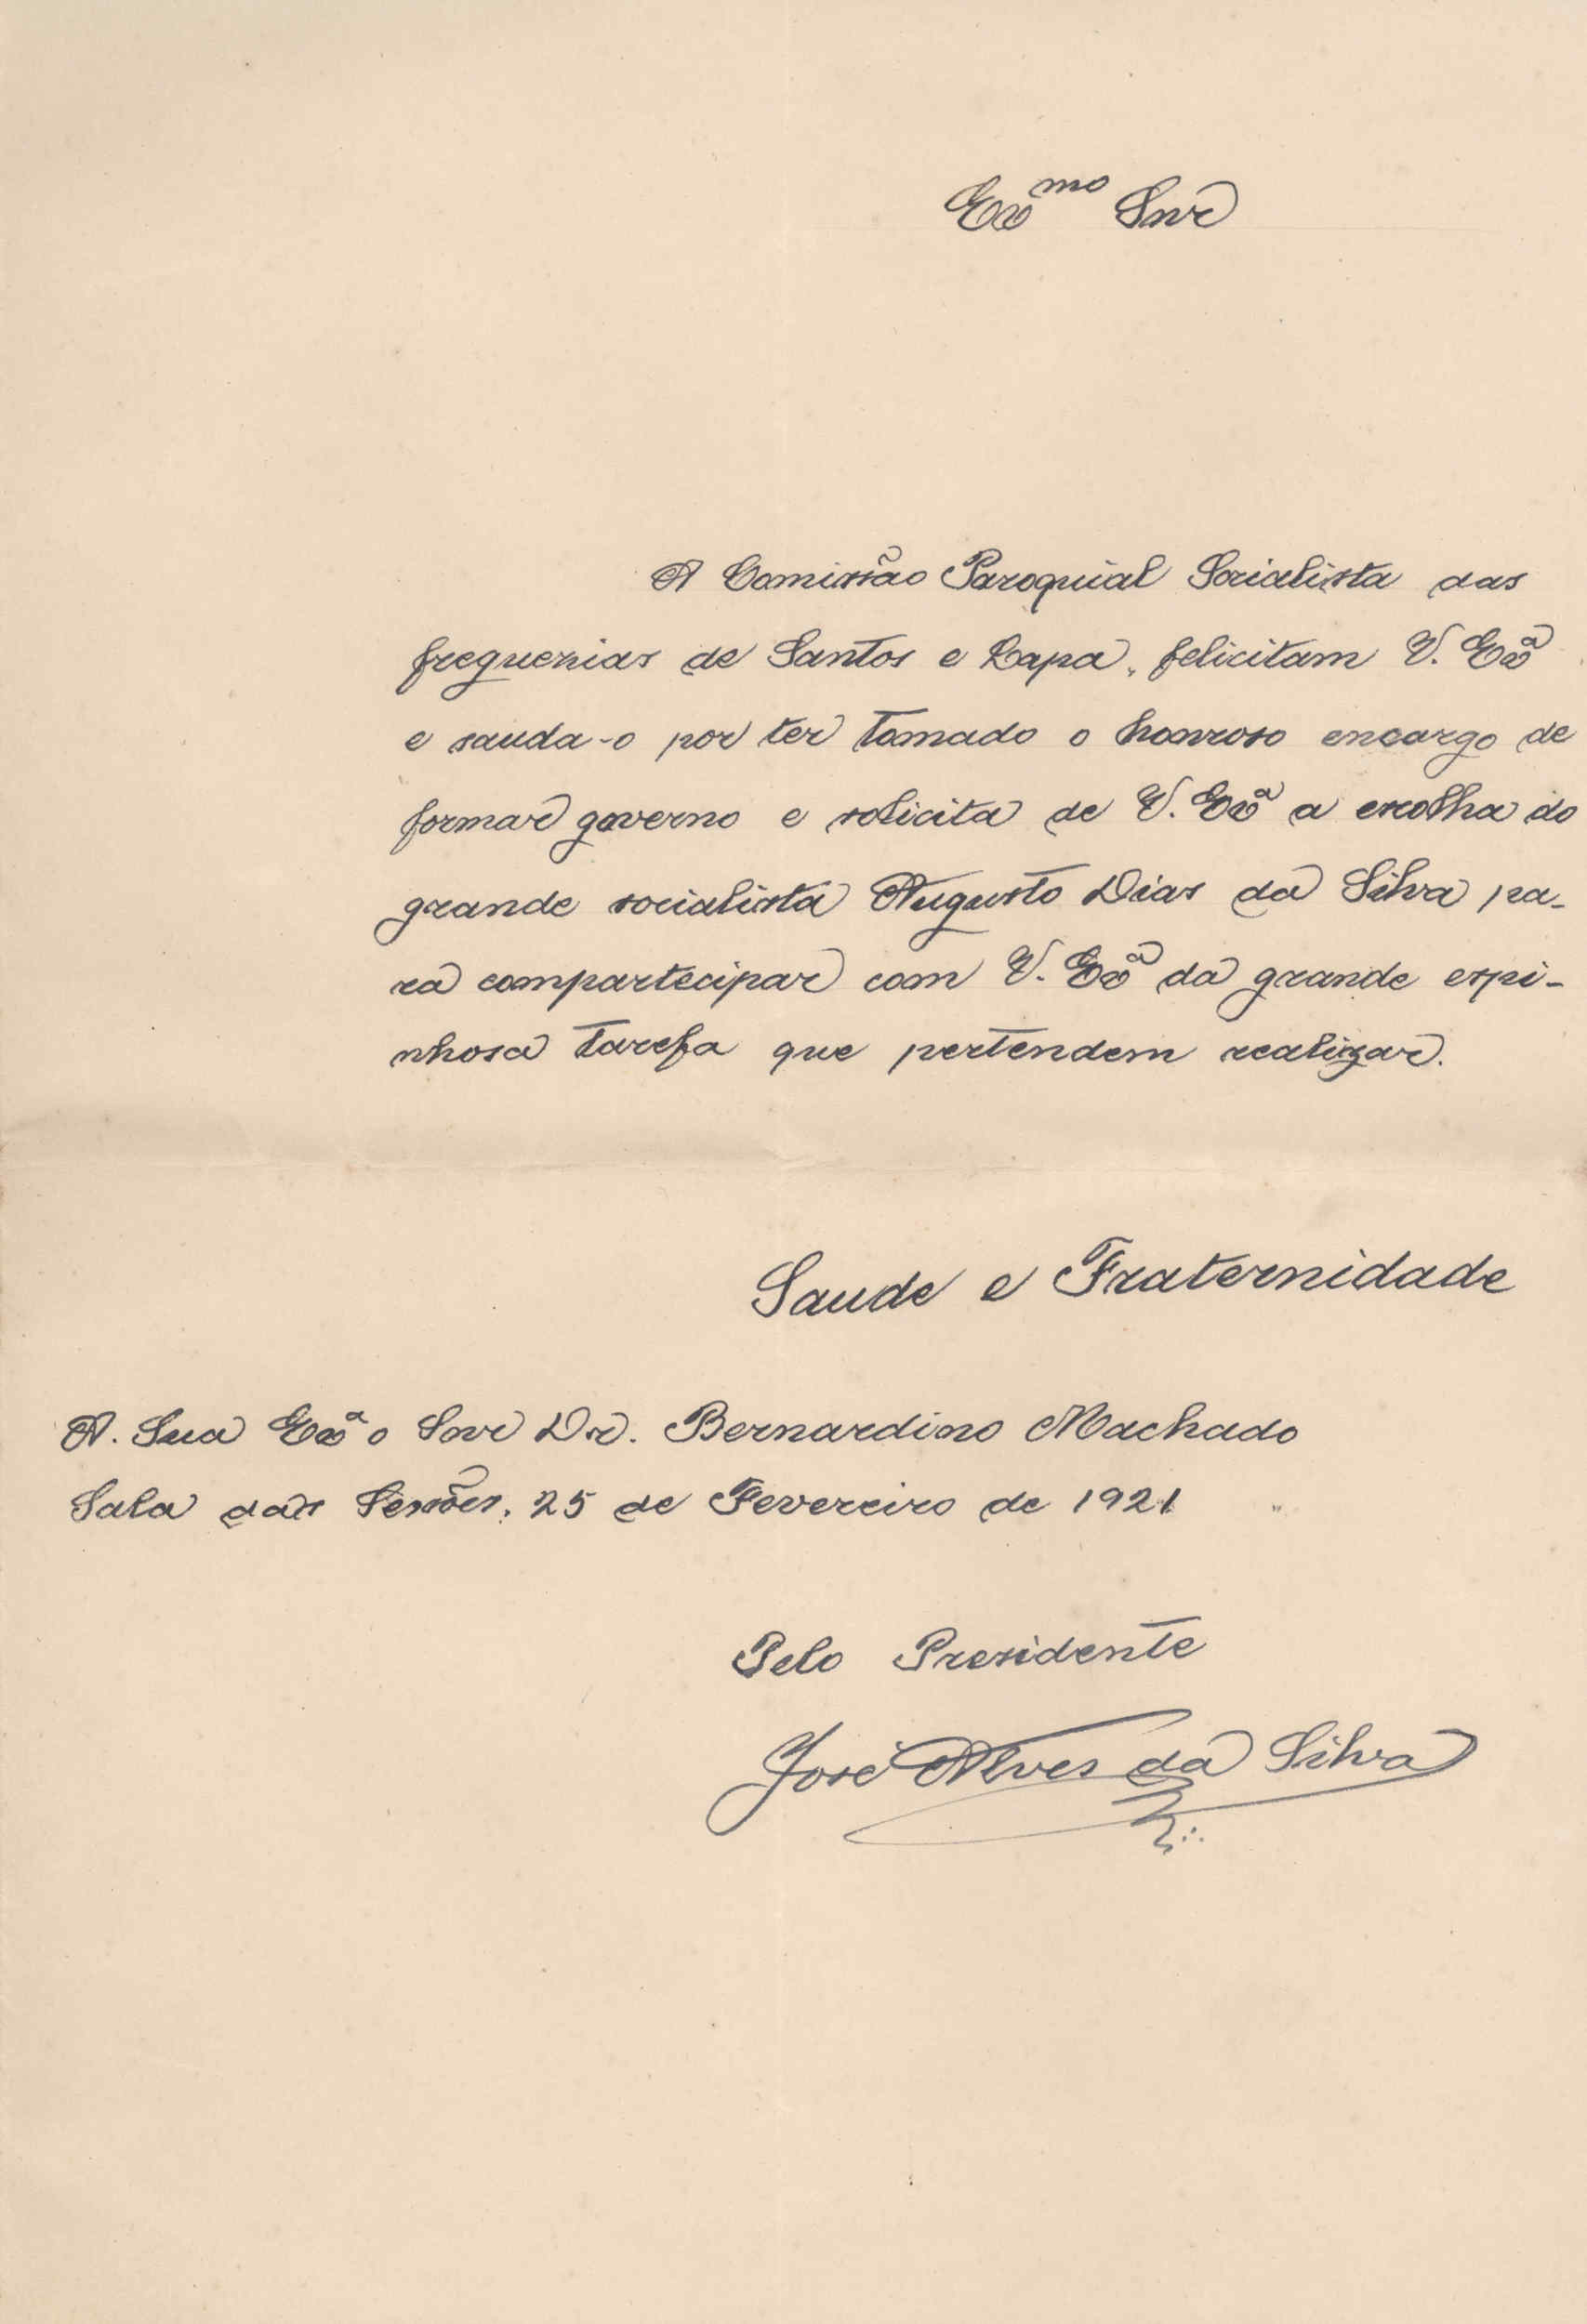 Exmo Snr
A Comissão Paroquial Socialista das
freguezias de Santos e Lapa, felicitam V. Exª
e sauda-o por ter tomado o honroso encargo de
formar governo e solicita de V. Exª a escolha do
grande socialista Augusto Dias da Silva pa-
ra compartecipar com V. Exª da grande espi-
nhosa tarefa que pertendem realizar.
Saude e Fraternidade
A. Sua Exª o Snr Dr. Bernardino Machado
Sala das Sessões, 25 de Fevereiro de 1921
Pelo Presidente
José Alves da Silva